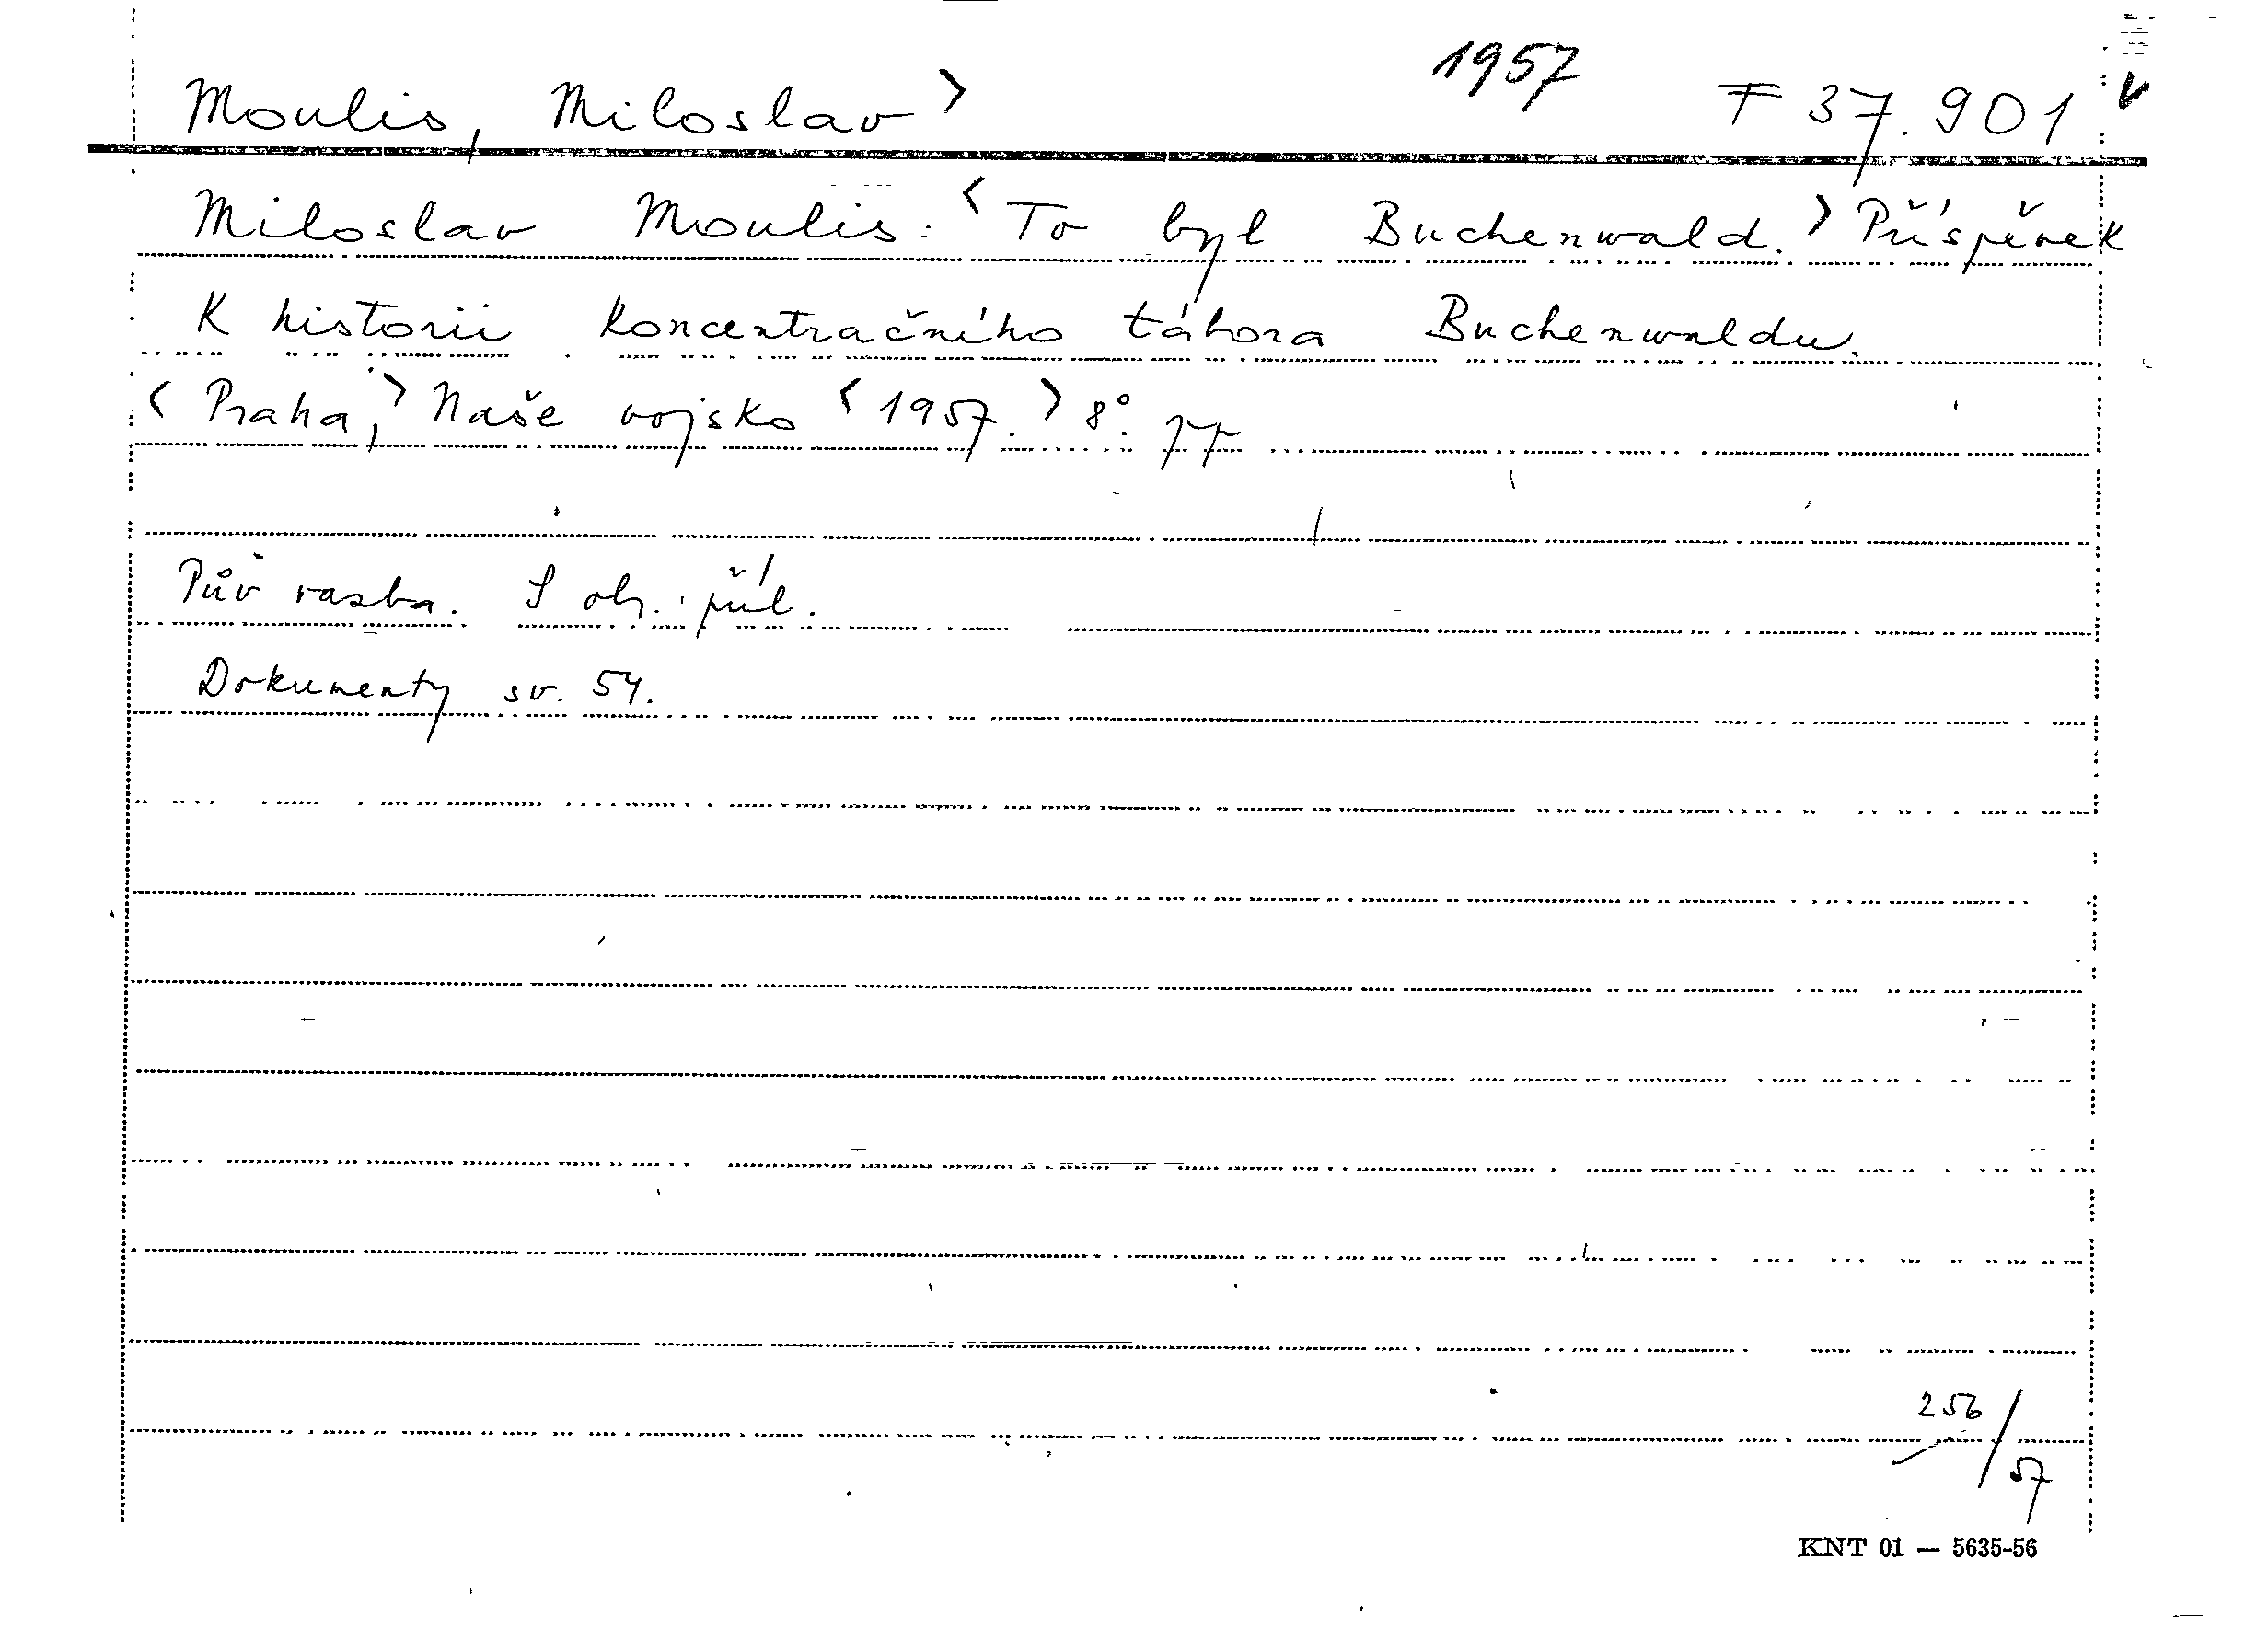 1957
Moulis, Miloslav> F 37.901 v
Miloslav Moulis: <To byl Buchenwald.> Příspěvek
K historii Koncentračního tábora Buchenwaldu.
<Praha,> Naše vojsko <1957.> 8°.
Pův vazba. S obr. příl.
Dokumenty sv. 54.
256/57
KNT 01 — 5635-56